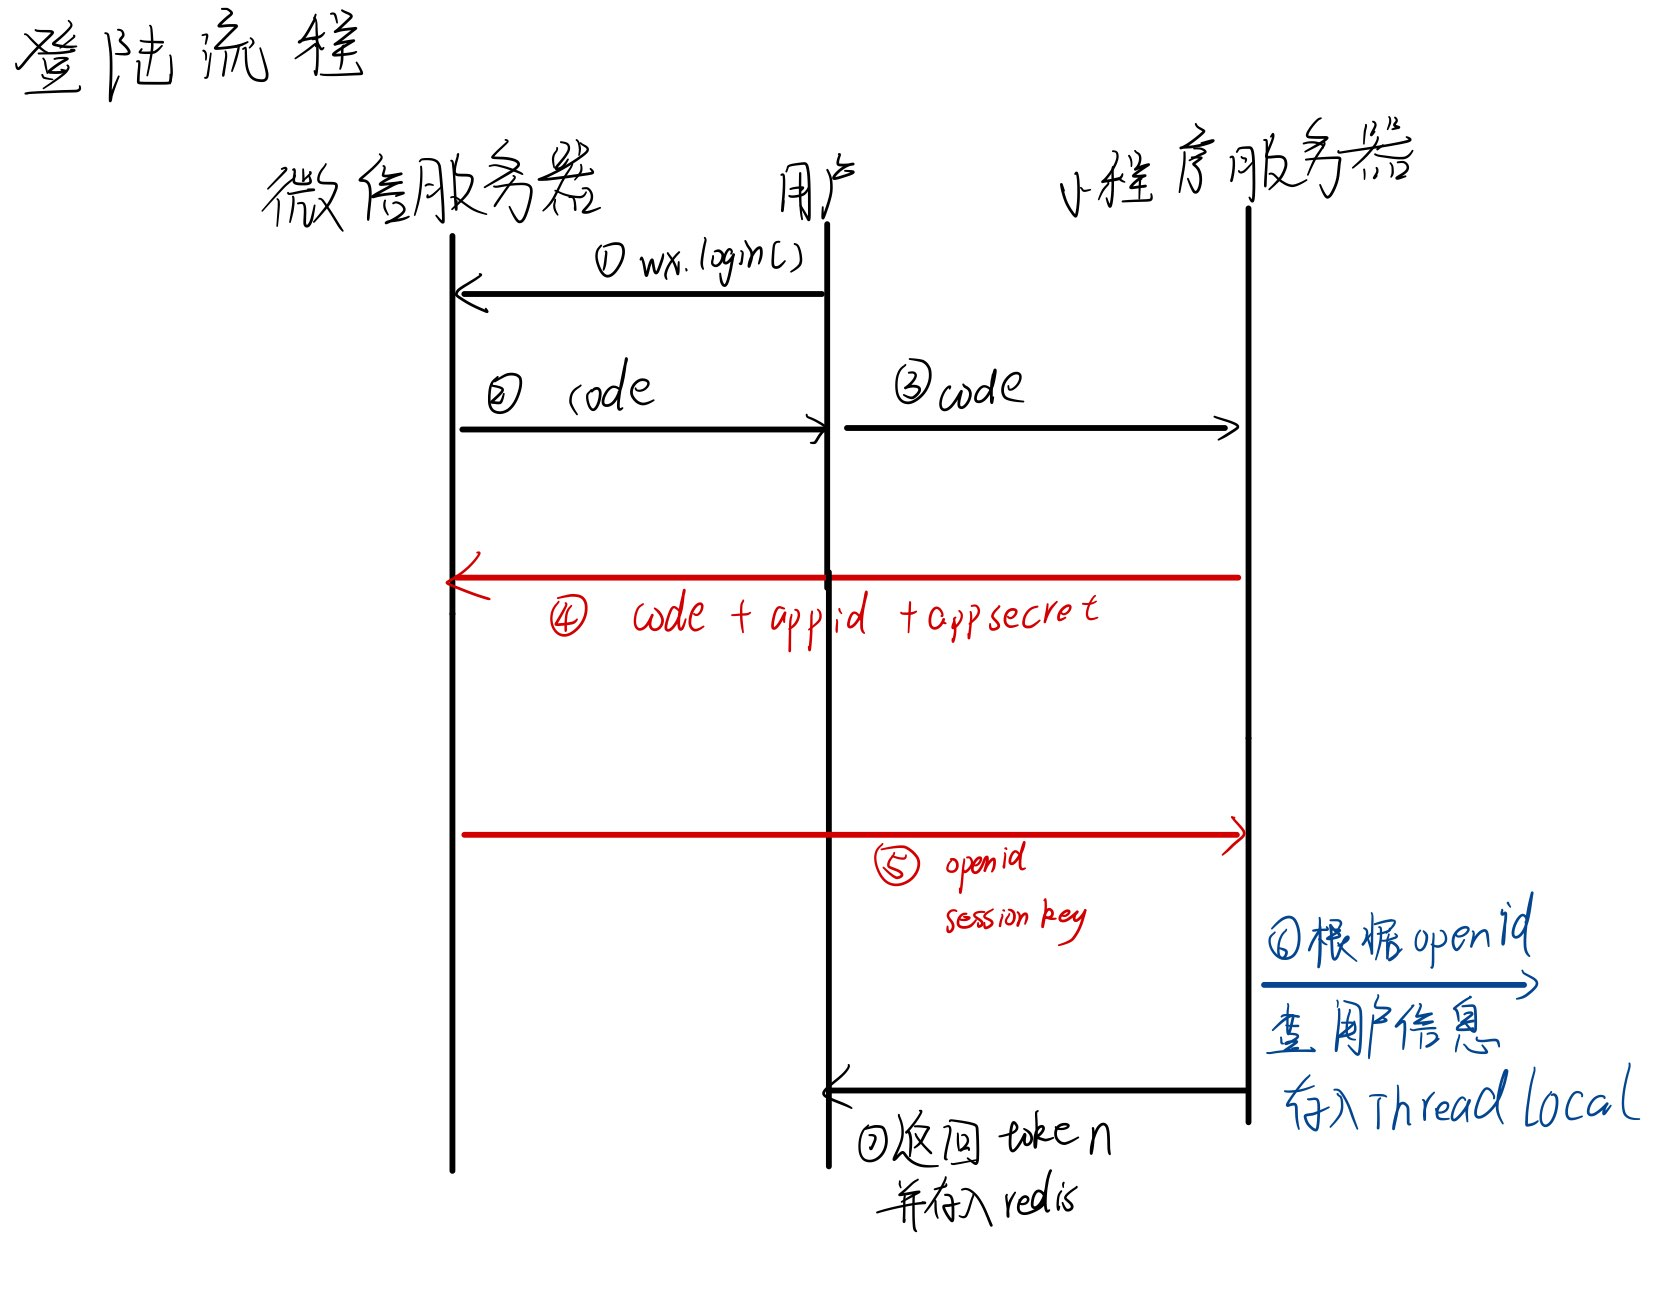 登陆流程
微信服务器 用户 小程序服务器
① wx.login()
② code ③ code
④ code + appid + appsecret
⑤ openid
session key
⑥根据openid
查用户信息
存入ThreadLocal
⑦返回token
并存入redis